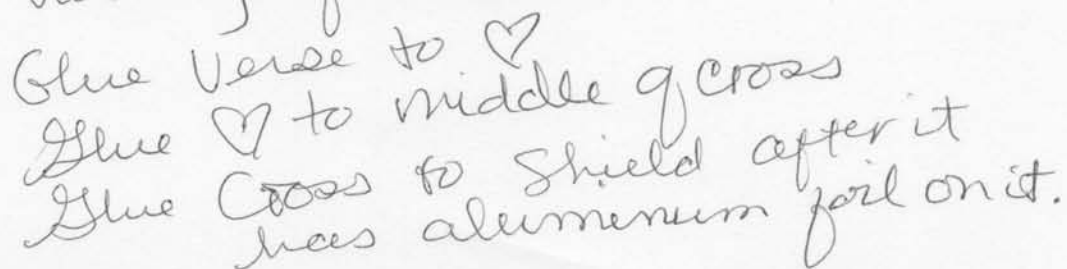 Glue Verse to ♡
Glue ♡ to middle of cross
Glue Cross to Shield after it
has alumenum foil on it.